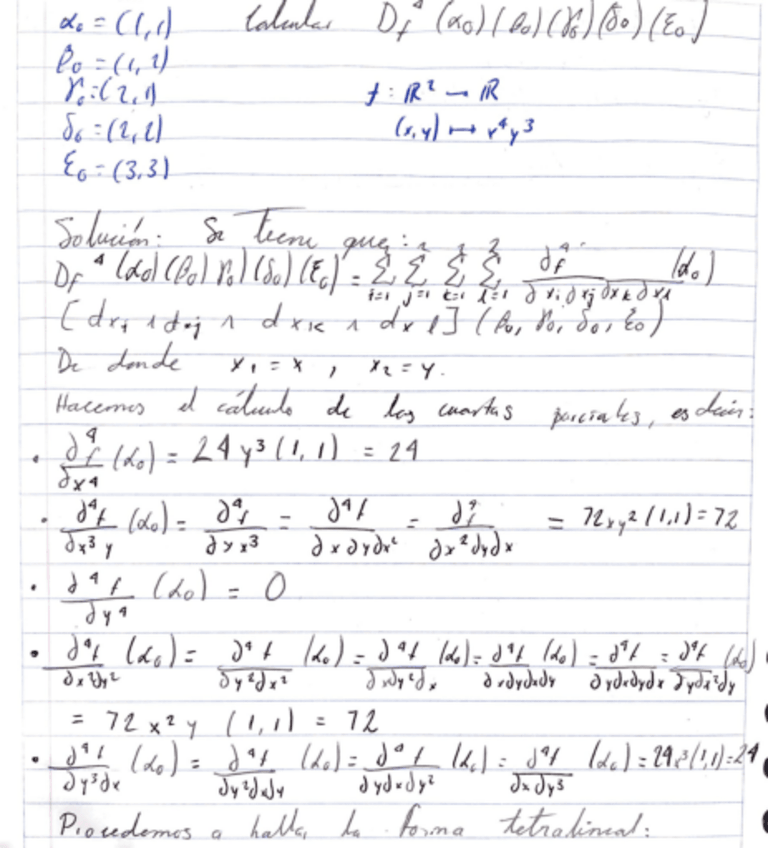 α₀ = (1,1) Calcular D_f⁴ (α₀)(β₀)(γ₀)(δ₀)(ε₀)
β₀ = (1,2)
γ₀ = (2,1) f : ℝ² → ℝ
δ₀ = (2,2) (x,y) ↦ x⁴y³
ε₀ = (3,3)
Solución: Se tiene que:
D_f⁴ (α₀)(β₀)(γ₀)(δ₀)(ε₀) = Σ_{i=1}² Σ_{j=1}² Σ_{k=1}² Σ_{l=1}² ∂⁴f/∂xi∂xj∂xk∂xl (α₀)
[dxi ∧ dxj ∧ dxk ∧ dxl] (β₀, γ₀, δ₀, ε₀)
De donde x₁ = x , x₂ = y.
Hacemos el cálculo de las cuartas parciales, es decir:
• ∂⁴f/∂x⁴ (α₀) = 24y³(1,1) = 24
• ∂⁴f/∂x³y (α₀) = ∂⁴f/∂yx³ = ∂⁴f/∂x∂y∂x² = ∂⁴f/∂x²∂y∂x = 72xy²(1,1) = 72
• ∂⁴f/∂y⁴ (α₀) = 0
• ∂⁴f/∂x²∂y² (α₀) = ∂⁴f/∂y²∂x² (α₀) = ∂⁴f/∂x∂y²∂x (α₀) = ∂⁴f/∂x∂y∂x∂y (α₀) = ∂⁴f/∂y∂x∂y∂x = ∂⁴f/∂y∂x²∂y (α₀)
= 72x²y (1,1) = 72
• ∂⁴f/∂y³∂x (α₀) = ∂⁴f/∂y²∂x∂y (α₀) = ∂⁴f/∂y∂x∂y² (α₀) = ∂⁴f/∂x∂y³ (α₀) = 24x³(1,1) = 24
Procedemos a hallar la forma tetralineal: